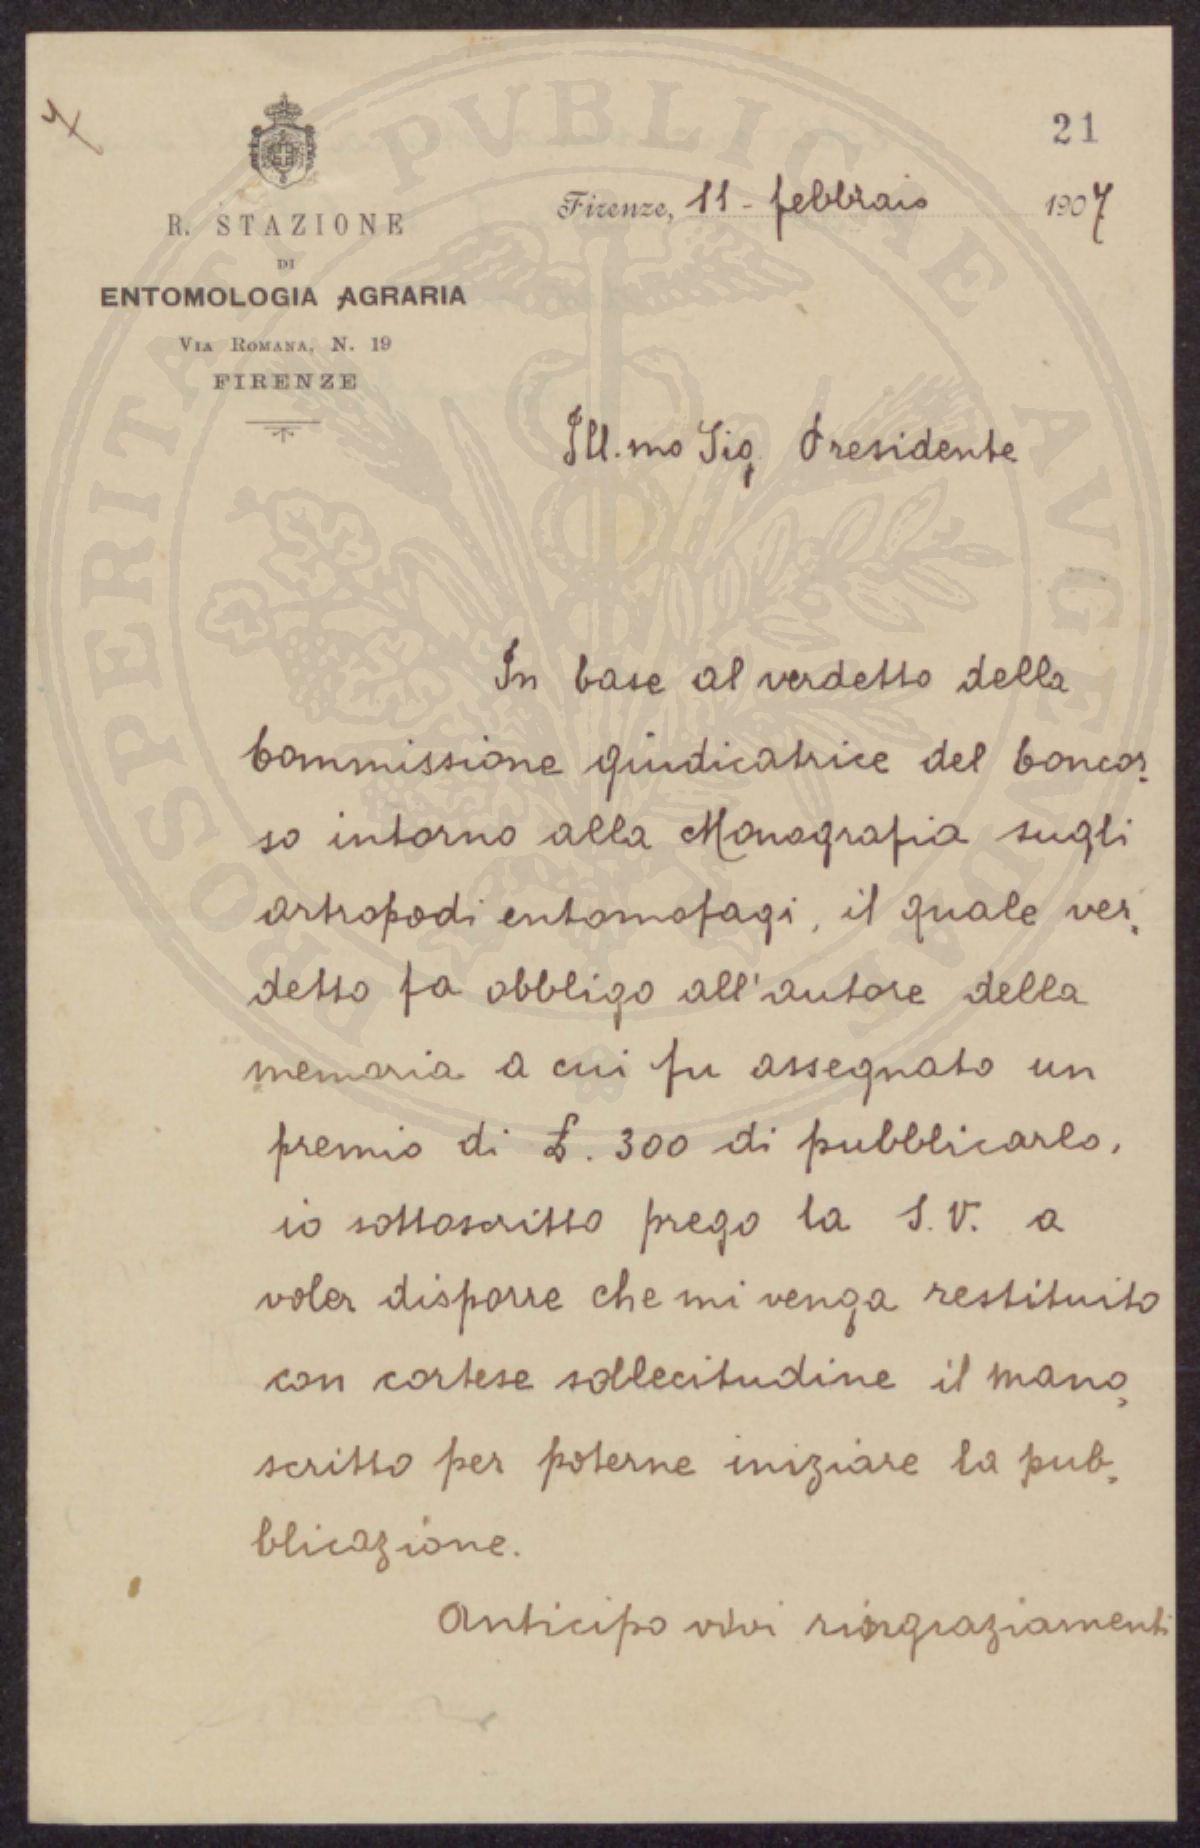 7
21
R. STAZIONE
DI
ENTOMOLOGIA AGRARIA
VIA ROMANA, N. 19
FIRENZE
Firenze, 11 - febbraio 1907
Ill.mo Sig. Presidente
In base al verdetto della
Commissione giudicatrice del Concor-
so intorno alla Monografia sugli
artropodi entomofagi, il quale ver-
detto fa obbligo all'autore della
memoria a cui fu assegnato un
premio di £. 300 di pubblicarlo,
io sottoscritto prego la S. V. a
voler disporre che mi venga restituito
con cortese sollecitudine il mano-
scritto per poterne iniziare la pub-
blicazione.
Anticipo vivi ringraziamenti
PROSPERITATI PVBLICAE AVGENDAE